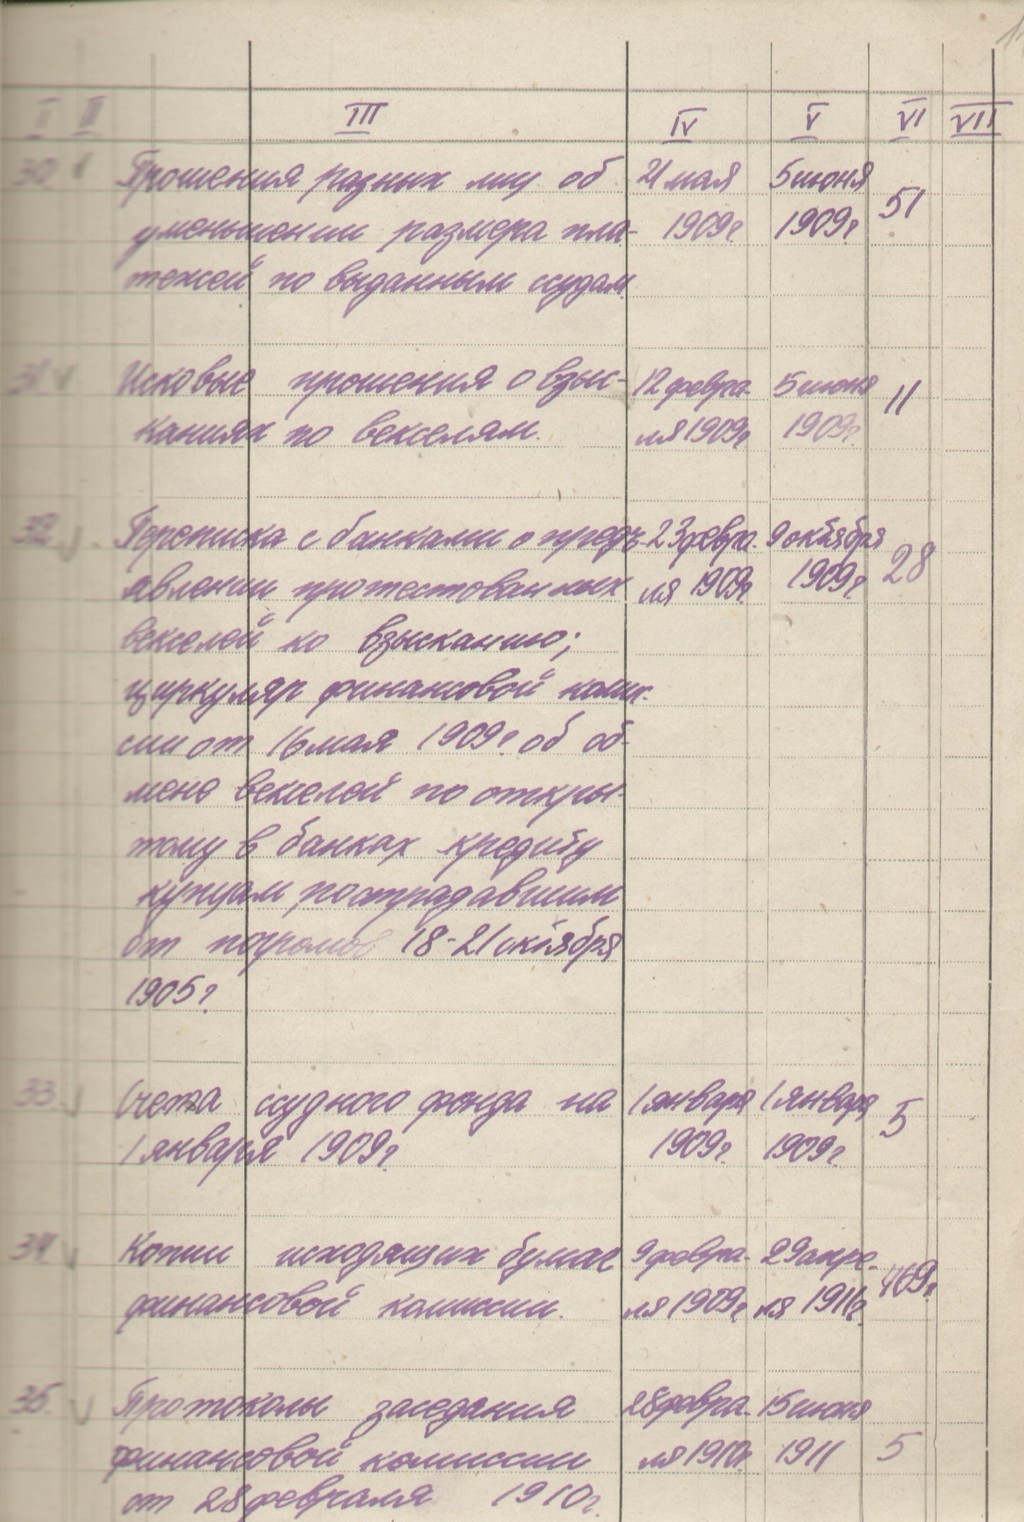 I II III IV V VI VII
30 Прошения разных лиц об 21 мая 5 июня 51
уменьшении размера пла- 1909г. 1909г.
тежей по выданным ссудам.
31 Исковые прошения о взыс- 12 февра- 5 июня 11
каниях по векселям. ля 1909г. 1909г.
32 Переписка с банками о предъ- 23 февра- 9 октября 28
явлении протестованных ля 1909г. 1909г.
векселей ко взысканию;
циркуляр финансовой комис-
сии от 16 мая 1909г. об об-
мене векселей по откры-
тому в банках кредиту
купцам, пострадавшим
от погромов 18-21 октября
1905г.
33 Счета ссудного фонда на 1 января 1 января 5
1 января 1909г. 1909г. 1909г.
34 Копии исходящих бумаг 9 февра- 29 апре- 469
финансовой комиссии. ля 1909г. ля 1911г.
35 Протоколы заседания 28 февра- 15 июня
финансовой комиссии ля 1910г. 1911 5
от 28 февраля 1910г.